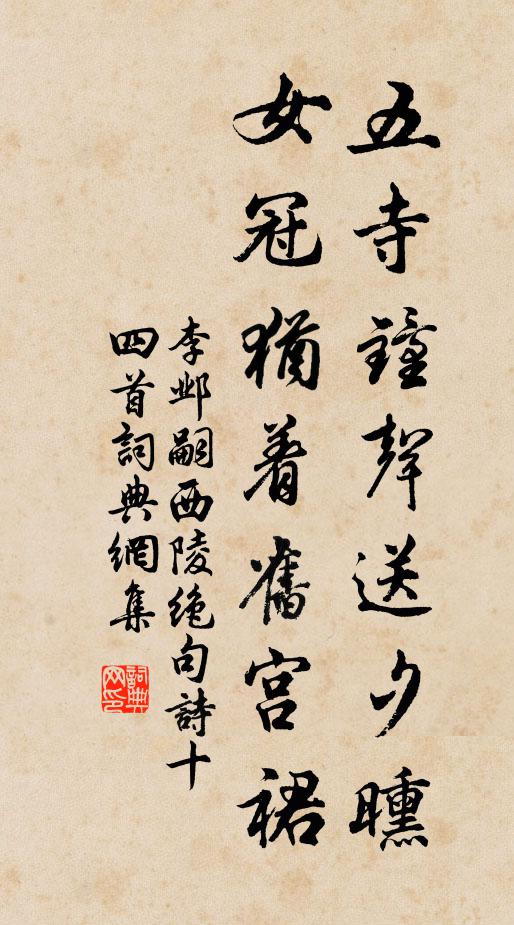 五寺鐘聲送夕曛
女冠猶着舊宮裙
李鄴嗣西陵絶句詩十
四首詞典網集
詞典网印